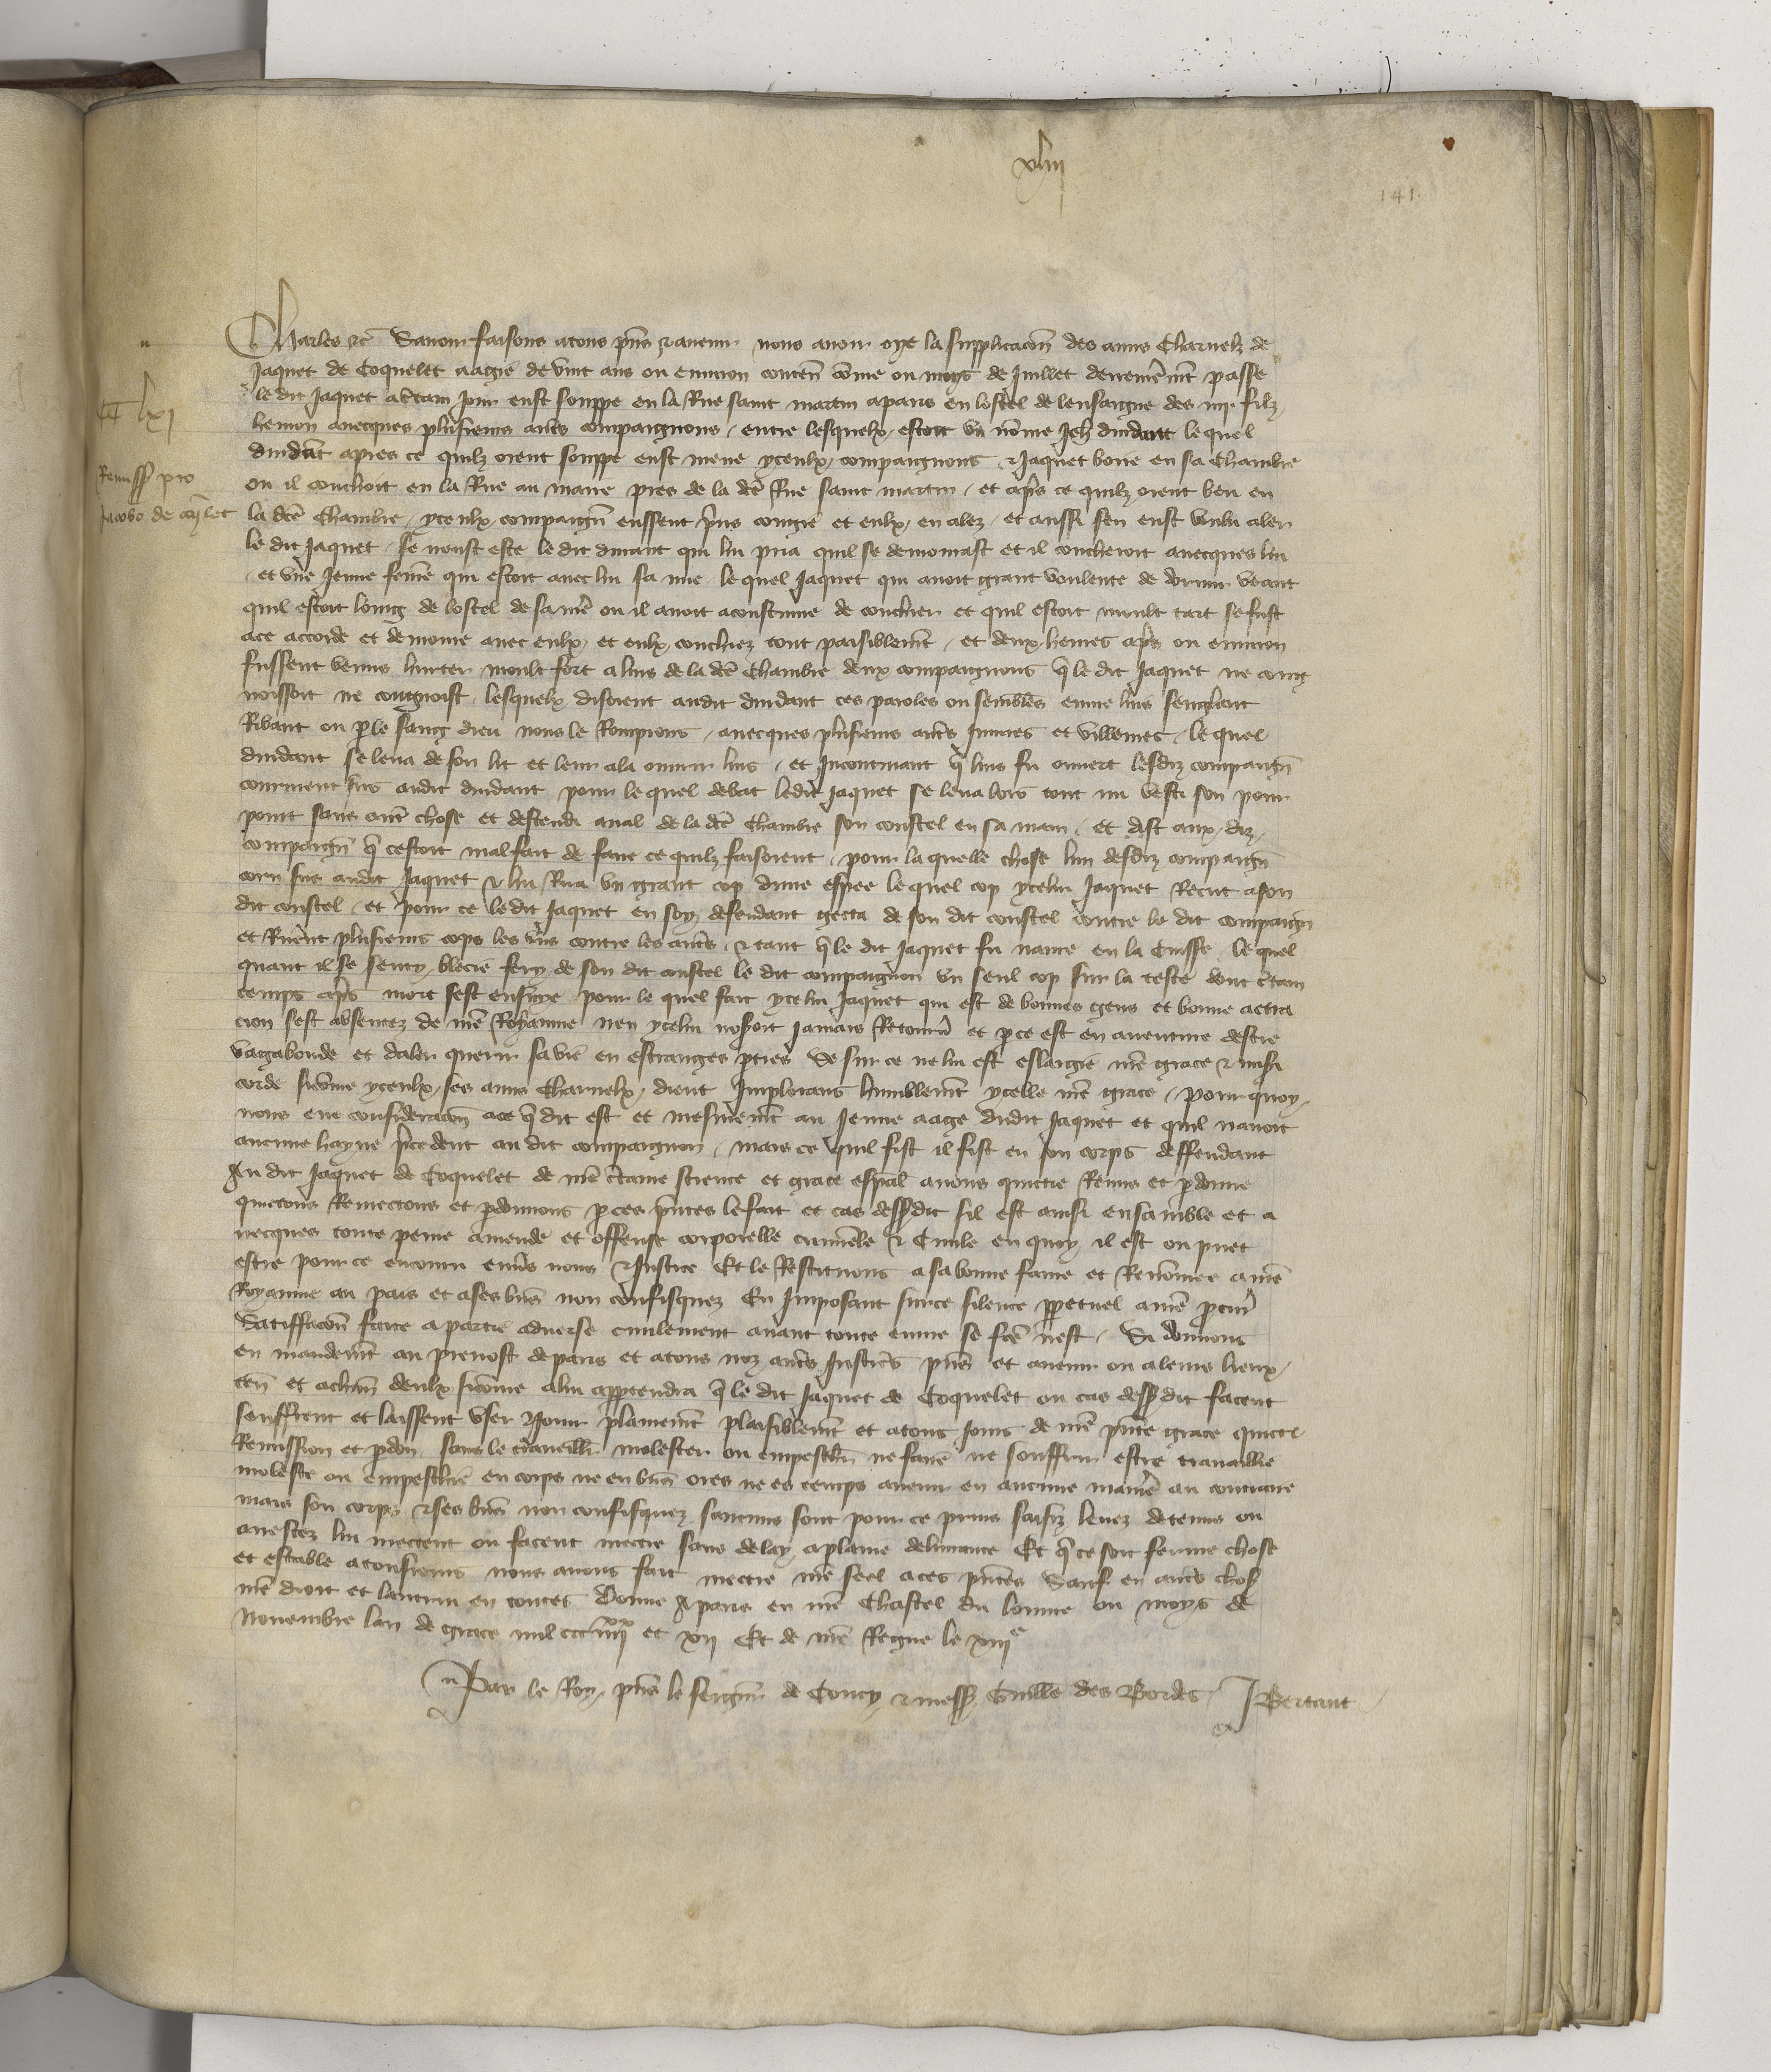 xliii
141.
Charles etc. Savoir faisons a tous pñs et avenir nous avoir oye la supplicacõn des amis charnelz de
Jaquet de Coquelet aagie de vint ans ou environ conteñ cõme ou moys de Juillet derrenierem̃t passe
le dit Jaquet a c̃tain jour eust souppe en la Rue saint martin a paris en lostel de lensaigne des iiii filz
hemon avecques plus̃ieurs aut̃s compaignons / entre lesquelx estoit un nõme Jeh̃ duidant le quel
CC lxi
duidant apres ce quilz orent souppe eust mene yceulx compaignons et Jaquet boire en sa chambre
Remiss̃ pro
ou il couchoit en la Rue au maire pres de la dc̃e Rue saint martin / et ap̃s ce quilz orent beu en
Jacobo de
la dc̃e chambre / yceulx compaigñ eussent prins congie et eulx en alez / et aussi sen eust voulu aler
le dit Jaquet / se neust este le dit duidant qui lui pria quil se demourast et il coucheroit avecques lui
et une Jeune fem̃e qui estoit avec lui sa mie le quel Jaquet qui avoit grant voulente de dormir veant
quil estoit loing de lostel de sa mer̃e ou il avoit acoustume de couchier et quil estoit moult tart se fust
a ce accorde et demoure avec eulx et eulx couchiez tout paisiblem̃t / et deux heures ap̃s ou environ
fussent venus hurter moult fort a luis de la dc̃e chambre deux compaignons q̃ le dit Jaquet ne cong
noissoit ne congnoist lesquelx disoient au dit duidant ces paroles ou semblables euvre luis senglant
Ribaut ou p̱ le sang dieu nous le Romprons / avecques plus̃ieurs aut̃s Injures et villenies / le quel
duidant se leva de son lit et leur ala ouvrir luis / et Incontinant q̃ luis fu ouvert lesdiz compaigñ
coururent sus audit duidant pour le quel debat ledit Jaquet se leva lors tout nu vesti son pour
point sans aut̃e chose et descendi aval de la dc̃e chambre son coustel en sa main / et dist aux diz
compaigñ q̃ cestoit mal fait de faire ce quilz faisoient / pour la quelle chose lun desdiz compaigñ
coru sus audit Jaquet et lui Rua un grant cop dune espee lequel cop ycelui Jaquet Recut a son
dit coustel / et pour ce le dit Jaquet en soy defendant gecta de son dit coustel contre le dit compaigñ
et Ruerent plus̃ieurs cops les uns contre les aut̃s / et tant q̃ le dit Jaquet fu navre en la cuisse / le quel
quant il se senty blecie fery de son dit coustel le dit compaignon un seul cop sur la teste dont c̃tain
temps ap̃s mort sest ensuye pour le quel fait ycelui Jaquet qui est de bonnes gens et bonne actra
cion sest absentez de nr̃e Royaume nen ycelui noseroit jamais Retourñ et p̱ ce est en aventure destre
vagabonde et daler querir sa vie en estranges p̱ties se sur ce ne lui est eslargie nr̃e grace et miseri
corde sicõme yceulx ses amis charnelx dient Implorans humblem̃t ycelle nr̃e grace / pour quoy
nous eue consideracõn a ce q̃ dit est et mesmem̃t au jeune aage dudit Jaquet et quil navoit
aucune hayne p̃cedent audit compaignon / mais ce quil fist il fist en son corps deffendant
Au dit Jaquet de Coquelet de nr̃e c̃taine science et grace esp̃al avons quictie Remis et p̱donne
quictons Remectons et p̱donnons p̱ ces p̃ntes le fait et cas dessusdit sil est ainsi ensamble et a
vecques toute peine amende et offense corporelle crimiñele et civile en quoy il est ou puet
estre pour ce encouru env̾s nous et Justice Et le Restituons a sa bonne fame et Renõmee a nr̃e
Royaume au pais et a ses biens non confisquez En Imposant sur ce silence p̱petuel a nr̃e p̱cur̃
Satiffacõn faite a partie adverse civilement avant toute euvre se fc̃e nest / Si donnons
en mandem̃t au prevost de paris et a tous noz aut̃s Justic̃s p̃ñs et avenir ou a leurs lieux
teñ et a chũn deulx sicõme a lui app̱tendra q̃ le dit Jaquet de Coquelet ou cas dessusdit facent
seuffrent et laissent user et Jouir plainem̃t plaisiblem̃t et a tous Jours de nr̃e p̃nte grace quictce
Remission et p̱don sans le travaillier molester ou empeschier ne faire ne souffrir estre travaillie
moleste ou empeschie en corps ne en biens ores ne es temps avenir en aucune manier̃e au contraire
mais son corps et ses biens non confisquez saucuns sont pour ce prins saisiz levez detenus ou
arrestez lui mectent ou facent mectre sans delay a plaine delivrance Et q̃ ce soit ferme chose
et estable a tousjours nous avons fait mectre nr̃e seel a ces p̃ntes Sauf en aut̃s chos̃
nr̃e droit et lautrui en toutes Donne A paris en nr̃e Chastel du louvre ou moys de
Novembre lan de grace mil ccc iiii xx et xii Et de nr̃e Regne le xiii e
Par le Roy p̃ñs le seigñ de Coucy et mess̃ Guill̃e des Bordes J Bertaut